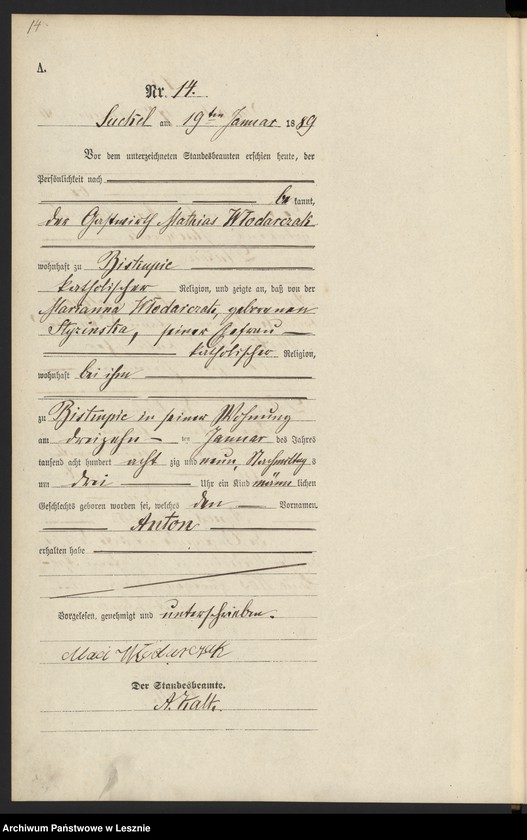 14
A.
Nr. 14.
am 19ten Januar 1889
Vor dem unterzeichneten Standesbeamten erschien heute, der
Persönlichkeit nach
be kannt,
der Gastwirth Mathias Włodarczak
wohnhaft zu Bistupic
katholischer Religion, und zeigte an, daß von der
Marianna Włodarczak, geborenen
seiner Ehefrau
katholischer Religion,
wohnhaft bei ihm
zu Bistupic in seiner Wohnung
am dreizehn ten Januar des Jahres
tausend acht hundert acht zig und neun, Nachmittags
um drei Uhr ein Kind männ lichen
Geschlechts geboren worden sei, welches den Vornamen
Anton
erhalten habe
Vorgelesen, genehmigt und unterschrieben.
Der Standesbeamte.
Archiwum Państwowe w Lesznie